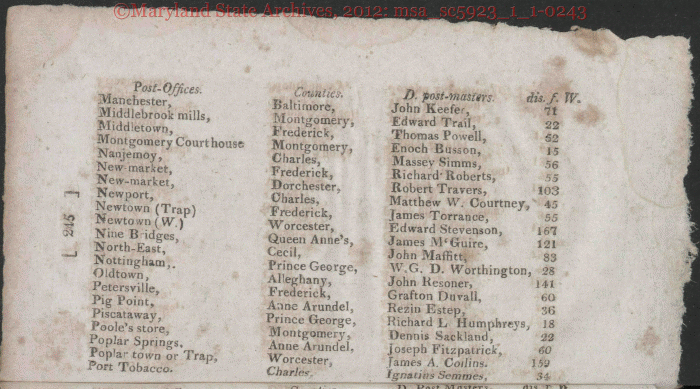 ©Maryland State Archives, 2012: msa_sc5923_1_1-0243
Post-Offices. Counties. D. post-masters. dis. f. W.
Manchester, Baltimore, John Keefer, 71
Middlebrook mills, Montgomery, Edward Trail, 22
Middletown, Frederick, Thomas Powell, 52
Montgomery Courthouse Montgomery, Enoch Busson, 15
Nanjemoy, Charles, Massey Simms, 56
New-market, Frederick, Richard Roberts, 55
New-market, Dorchester, Robert Travers, 103
Newport, Charles, Matthew W. Courtney, 45
Newtown (Trap) Frederick, James Torrance, 55
Newtown (W.) Worcester, Edward Stevenson, 167
Nine Bridges, Queen Anne's, James McGuire, 121
North-East, Cecil, John Maffitt, 83
Nottingham, Prince George, W.G. D. Worthington, 28
Oldtown, Alleghany, John Resoner, 141
Petersville, Frederick, Grafton Duvall, 60
Pig Point, Anne Arundel, Rezin Estep, 36
Piscataway, Prince George, Richard L Humphreys, 18
Poole's store, Montgomery, Dennis Sackland, 22
Poplar Springs. Anne Arundel. Joseph Fitzpatrick, 60
Poplar town or Trap, Worcester, James A. Collins. 159
Port Tobacco. Charles. Ignatius Semmes. 34
[ 245 ]